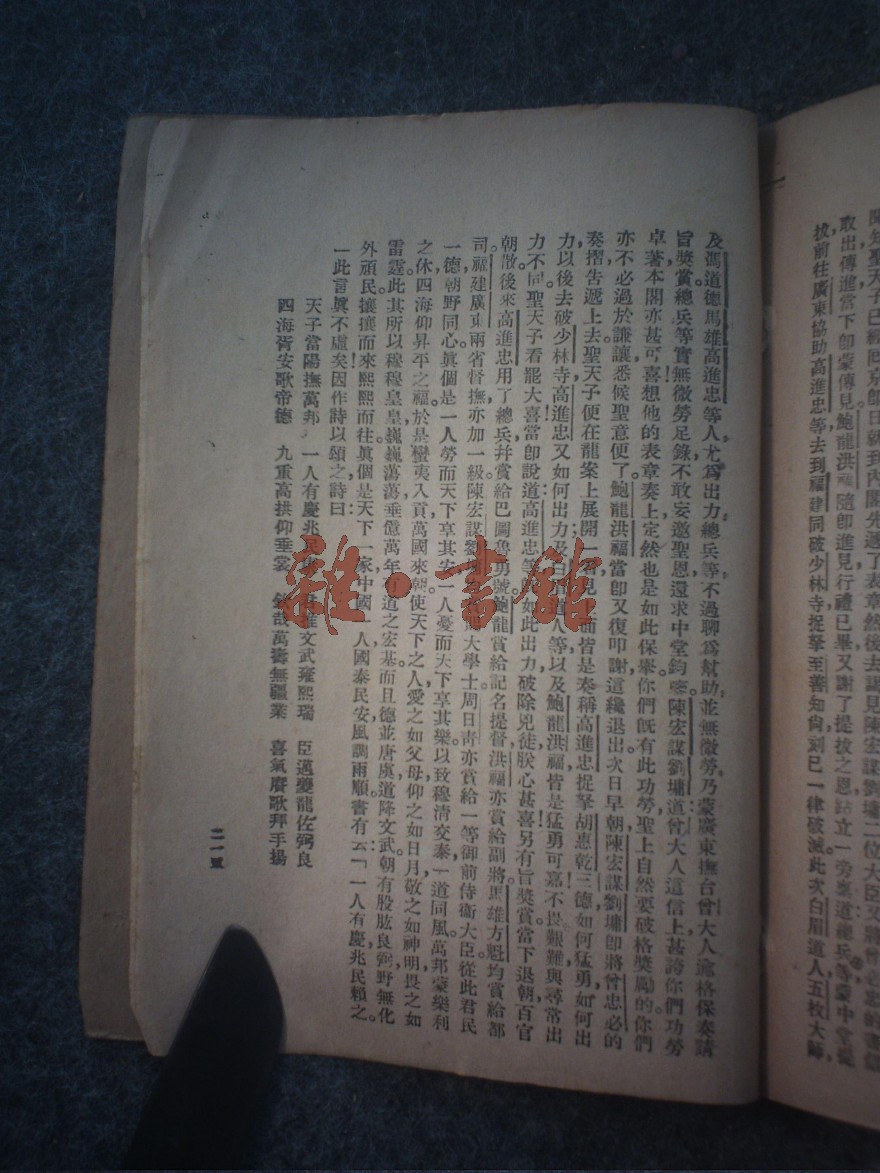 陳知聖天子已經回京即日就到內閣先遞了表章然後去謁見陳宏謀劉墉二位大臣又將曾必忠的書信
取出傳進當下即蒙傳見鮑龍洪福隨即進見行禮已畢又謝了提拔之恩立一旁稟道總兵等蒙中堂提
拔前往廣東協助高進忠等去到福建同破少林寺捉拏至善知尚刻已一律破滅此次白眉道人五枚大師,
及馮道德馬雄高進忠等人,尤爲出力總兵等,不過聊爲幫助,並無微勞乃蒙廣東撫台曾大人逾格保奏請
旨獎賞總兵等實無微勞足錄不敢妄邀聖恩還求中堂鈞鑒陳宏謀劉墉道曾大人這信上甚誇你們功勞
卓著本閣亦甚可喜想他的表章奏上定然也是如此保舉你們既有此功勞聖上自然要破格獎勵的你們
亦不必過於謙讓悉候聖意便了鮑龍洪福當即又復叩謝這纔退出次日早朝陳宏謀劉墉即將曾忠必的
奏摺吿遞上去聖天子便在龍案上展開一看見上面皆是奏稱高進忠捉拏胡惠乾三德如何猛勇如何出
力以後去破少林寺高進忠又如何出力及白眉道人等以及鮑龍洪福皆是猛勇可嘉不畏艱難與尋常出
力不同聖天子看罷大喜當即說道高進忠等既如此出力破除兇徒朕心甚喜另有旨獎賞當下退朝百官
朝散後來高進忠用了總兵幷賞給巴圖魯勇號鮑龍賞給記名提督洪福亦賞給副將馬雄方魁均賞給都
司福建廣東兩省督撫亦加一級陳宏謀劉墉大學士周日青亦賞給一等御前侍衞大臣從此君民
一德朝野同心眞個是一人勞而天下享其安一人憂而天下享其樂以致穆清交泰一道同風萬邦蒙樂利
之休四海仰昇平之福於是蠻夷入貢萬國來朝使天下之人愛之如父母仰之如日月敬之如神明畏之如
雷霆此其所以穆穆皇皇巍巍蕩蕩垂億萬年有道之宏基而且德並唐虞道降文武朝有股肱良弼野無化
外頑民攘攘而來熙熙而往眞個是天下一家中國一人國泰民安風調雨順書有云「一人有慶兆民賴之
一此言眞不虛矣因作詩以頌之詩曰
天子當陽撫萬邦 一人有慶兆民 文武雍熙瑞 臣邁夔龍佐弼良
四海胥安歌帝德 九重高拱仰垂裳 哉萬壽無疆業 喜氣賡歌拜手揚
二一張
雜·書館